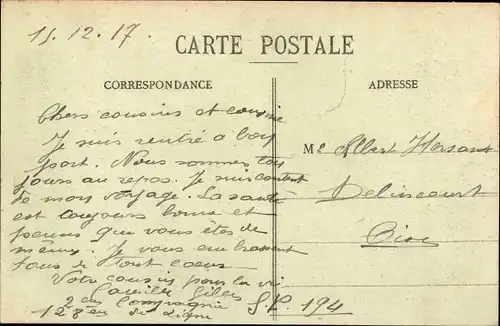 15.12.17.
CARTE POSTALE
CORRESPONDANCE
ADRESSE
Chers cousins et cousine
Je suis rentré a bon
port. Nous sommes tou
jours au repos. Je suis content
de mon voyage. La santé
est toujours bonne et
pense que vous êtes de
mêmes. Je vous embrassent
tous de tout coeur
Votre cousins pour la vie
Gilles
2 em Compagnie
128 em de Ligne
S.P. 194
Mr Albert Hersant
Delincourt
Oise